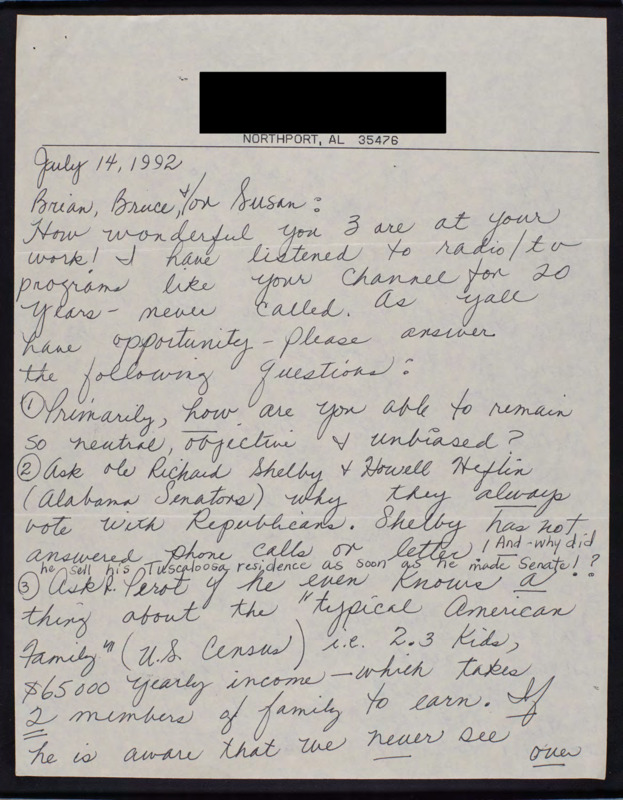 NORTHPORT, AL 35476
July 14, 1992
Brian, Bruce, &/or Susan:
How wonderful you 3 are at your
work! I have listened to radio/tv
programs like your Channel for 20
years - never called. As yall
have opportunity - please answer
the following questions:
① Primarily, how are you able to remain
so neutral, objective & unbiased?
② Ask ole Richard Shelby & Howell Heflin
(Alabama Senators) why they always
vote with Republicans. Shelby has not
answered phone calls or letter! And - why did
he sell his Tuscaloosa residence as soon as he made Senate!?
③ Ask R. Perot if he even knows a
thing about the "typical American
Family" (U.S. Census) i.e. 2.3 kids,
$65000 yearly income - which takes
2 members of family to earn. If
he is aware that we never see
over